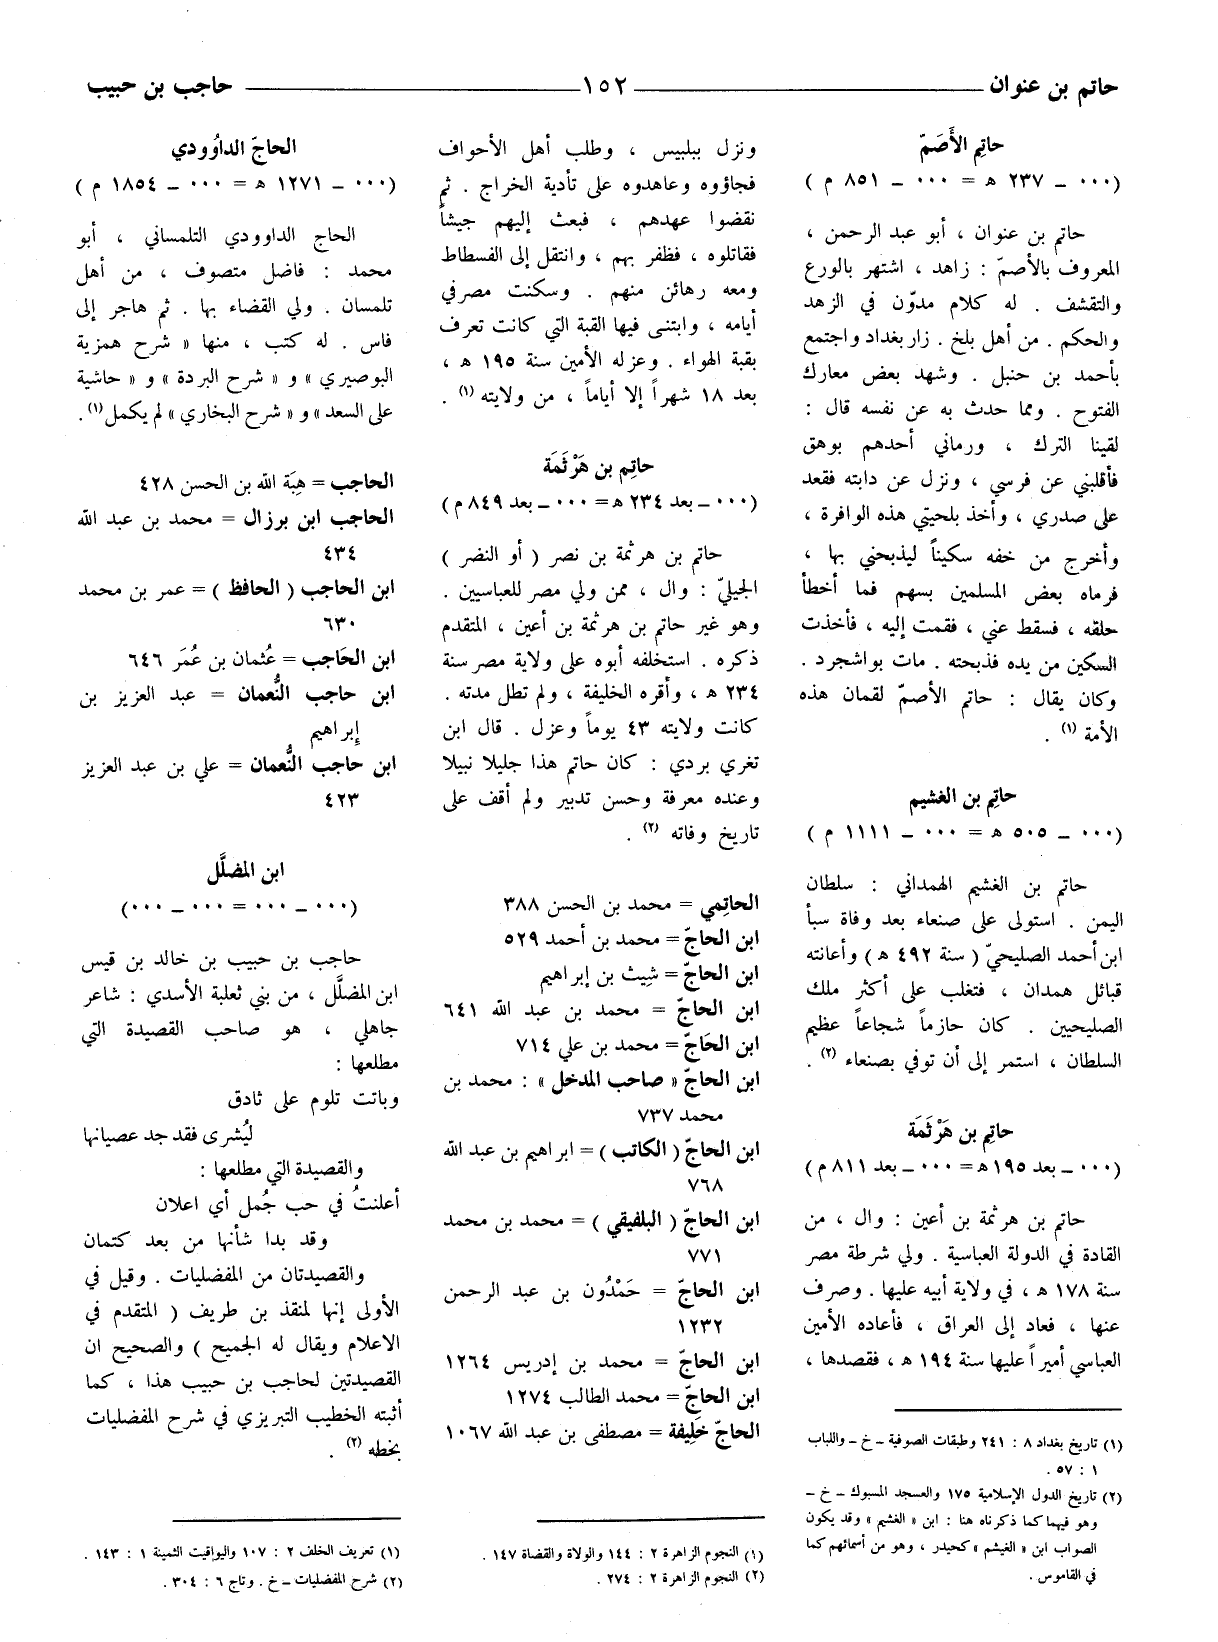 حاتم بن عنوان ١٥٢ حاجب بن حبيب
حاتِم الأَصَمّ
(٠٠٠ - ٢٣٧ ه = ٠٠٠ - ٨٥١ م )
حاتم بن عنوان ، أبو عبد الرحمن ،
المعروف بالأصمّ : زاهد ، اشتهر بالورع
والتقشف . له كلام مدوّن في الزهد
والحكم . من أهل بلخ . زار بغداد واجتمع
بأحمد بن حنبل . وشهد بعض معارك
الفتوح . ومما حدث به عن نفسه قال :
لقينا الترك ، ورماني أحدهم بوهق
فأقلبني عن فرسي ، ونزل عن دابته فقعد
على صدري ، وأخذ بلحيتي هذه الوافرة ،
وأخرج من خفه سكيناً ليذبحني بها ،
فرماه بعض المسلمين بسهم فما أخطأ
حلقه ، فسقط عني ، فقمت إليه ، فأخذت
السكين من يده فذبحته . مات بواشجرد .
وكان يقال : حاتم الأصمّ لقمان هذه
الأمة (١) .
حاتِم بن الغشيم
(٠٠٠ - ٥٠٥ ه = ٠٠٠ - ١١١١ م )
حاتم بن الغشيم الهمداني : سلطان
اليمن . استولى على صنعاء بعد وفاة سبأ
ابن أحمد الصليحيّ ( سنة ٤٩٢ ه ) وأعانته
قبائل همدان ، فتغلب على أكثر ملك
الصليحيين . كان حازماً شجاعاً عظيم
السلطان ، استمر إلى أن توفي بصنعاء (٢) .
حاتِم بن هَرْثَمَة
(٠٠٠ - بعد ١٩٥ ه = ٠٠٠ - بعد ٨١١ م )
حاتم بن هرثمة بن أعين : وال ، من
القادة في الدولة العباسية . ولي شرطة مصر
سنة ١٧٨ ه ، في ولاية أبيه عليها . وصرف
عنها ، فعاد إلى العراق ، فأعاده الأمين
العباسي أميراً عليها سنة ١٩٤ ه ، فقصدها ،
(١) تاريخ بغداد ٨ : ٢٤١ وطبقات الصوفية - خ - واللباب
١ : ٥٧ .
(٢) تاريخ الدول الإسلامية ١٧٥ والعسجد المسبوك - خ -
وهو فيهما كما ذكرناه هنا : ابن « الغشيم » وقد يكون
الصواب ابن « الغيشم » كحيدر ، وهو من أسمائهم كما
في القاموس .
ونزل ببلبيس ، وطلب أهل الأحواف
فجاؤوه وعاهدوه على تأدية الخراج . ثم
نقضوا عهدهم ، فبعث إليهم جيشاً
فقاتلوه ، فظفر بهم ، وانتقل إلى الفسطاط
ومعه رهائن منهم . وسكنت مصر في
أيامه ، وابتنى فيها القبة التي كانت تعرف
بقبة الهواء . وعزله الأمين سنة ١٩٥ ه ،
بعد ١٨ شهراً إلا أياماً ، من ولايته (١) .
حاتِم بن هَرْثَمَة
(٠٠٠ - بعد ٢٣٤ ه = ٠٠٠ - بعد ٨٤٩ م )
حاتم بن هرثمة بن نصر ( أو النضر )
الجيليّ : وال ، ممن ولي مصر للعباسيين .
وهو غير حاتم بن هرثمة بن أعين ، المتقدم
ذكره . استخلفه أبوه على ولاية مصر سنة
٢٣٤ ه ، وأقره الخليفة ، ولم تطل مدته .
كانت ولايته ٤٣ يوماً وعزل . قال ابن
تغري بردي : كان حاتم هذا جليلا نبيلا
وعنده معرفة وحسن تدبير ولم أقف على
تاريخ وفاته (٢) .
الحاتِمي = محمد بن الحسن ٣٨٨
ابن الحاجّ = محمد بن أحمد ٥٢٩
ابن الحاجّ = شِيث بن إبراهيم
ابن الحاجّ = محمد بن عبد الله ٦٤١
ابن الحَاجّ = محمد بن علي ٧١٤
ابن الحاجّ « صاحب المدخل » : محمد بن
محمد ٧٣٧
ابن الحاجّ ( الكاتب ) = ابراهيم بن عبد الله
٧٦٨
ابن الحاجّ ( البلفيقي ) = محمد بن محمد
٧٧١
ابن الحاجّ = حَمْدُون بن عبد الرحمن
١٢٣٢
ابن الحاجّ = محمد بن إدريس ١٢٦٤
ابن الحاجّ = محمد الطالب ١٢٧٤
الحاجّ خَلِيفة = مصطفى بن عبد الله ١٠٦٧
(١) النجوم الزاهرة ٢ : ١٤٤ والولاة والقضاة ١٤٧ .
(٢) النجوم الزاهرة ٢ : ٢٧٤ .
الحاجّ الداوُودي
(٠٠٠ - ١٢٧١ ه = ٠٠٠ - ١٨٥٤ م )
الحاج الداوودي التلمساني ، أبو
محمد : فاضل متصوف ، من أهل
تلمسان . ولي القضاء بها . ثم هاجر إلى
فاس . له كتب ، منها « شرح همزية
البوصيري » و « شرح البردة » و « حاشية
على السعد » و « شرح البخاري » لم يكمل (١) .
الحاجب = هِبَة الله بن الحسن ٤٢٨
الحاجب ابن برزال = محمد بن عبد الله
٤٣٤
ابن الحاجب ( الحافظ ) = عمر بن محمد
٦٣٠
ابن الحَاجب = عُثمان بن عُمَر ٦٤٦
ابن حاجب النُّعمان = عبد العزيز بن
إبراهيم
ابن حاجب النُّعمان = علي بن عبد العزيز
٤٢٣
ابن المضلَّل
(٠٠٠ - ٠٠٠ = ٠٠٠ - ٠٠٠)
حاجب بن حبيب بن خالد بن قيس
ابن المضلَّل ، من بني ثعلبة الأسدي : شاعر
جاهلي ، هو صاحب القصيدة التي
مطلعها :
وباتت تلوم على ثادق
ليُشرى فقد جد عصيانها
والقصيدة التي مطلعها :
أعلنتُ في حب جُمل أي اعلان
وقد بدا شأنها من بعد كتمان
والقصيدتان من المفضليات . وقيل في
الأولى إنها لمنقذ بن طريف ( المتقدم في
الاعلام ويقال له الجميح ) والصحيح ان
القصيدتين لحاجب بن حبيب هذا ، كما
أثبته الخطيب التبريزي في شرح المفضليات
بخطه (٢) .
(١) تعريف الخلف ٢ : ١٠٧ واليواقيت الثمينة ١ : ١٤٣ .
(٢) شرح المفضليات - خ . وتاج ٦ : ٣٠٤ .